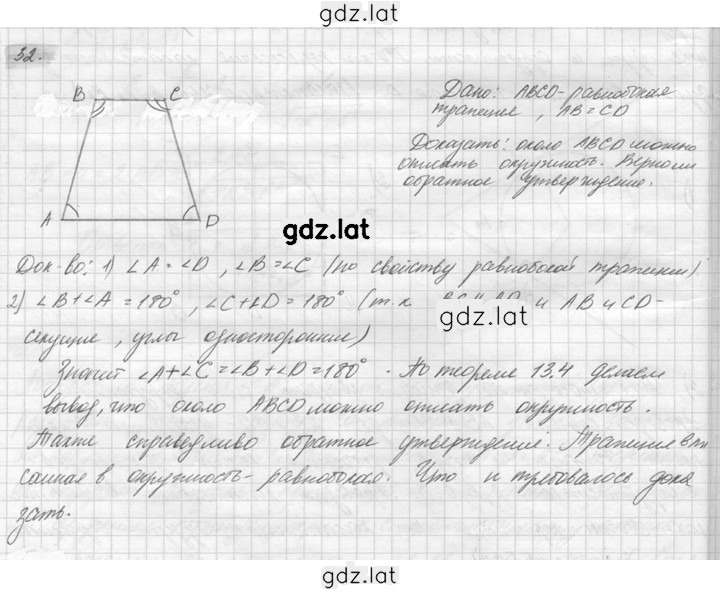 gdz.latt
32.
B C
A D
Дано: ABCD - равнобокая
трапеция, AB = CD
Доказать: около ABCD можно
описать окружность. Верно ли
обратное утверждение.
gdz.lat
Док-во: 1) ∠A = ∠D, ∠B = ∠C (по свойству равнобокой трапеции)
2) ∠B + ∠A = 180°, ∠C + ∠D = 180° (т.к. BC || AD и AB и CD -
gdz.lat
секущие, углы односторонние)
Значит ∠A + ∠C = ∠B + ∠D = 180°. По теореме 13.4 делаем
вывод, что около ABCD можно описать окружность.
Также справедливо обратное утверждение. Трапеция впи
санная в окружность - равнобокая. Что и требовалось дока
зать.
gdz.lat